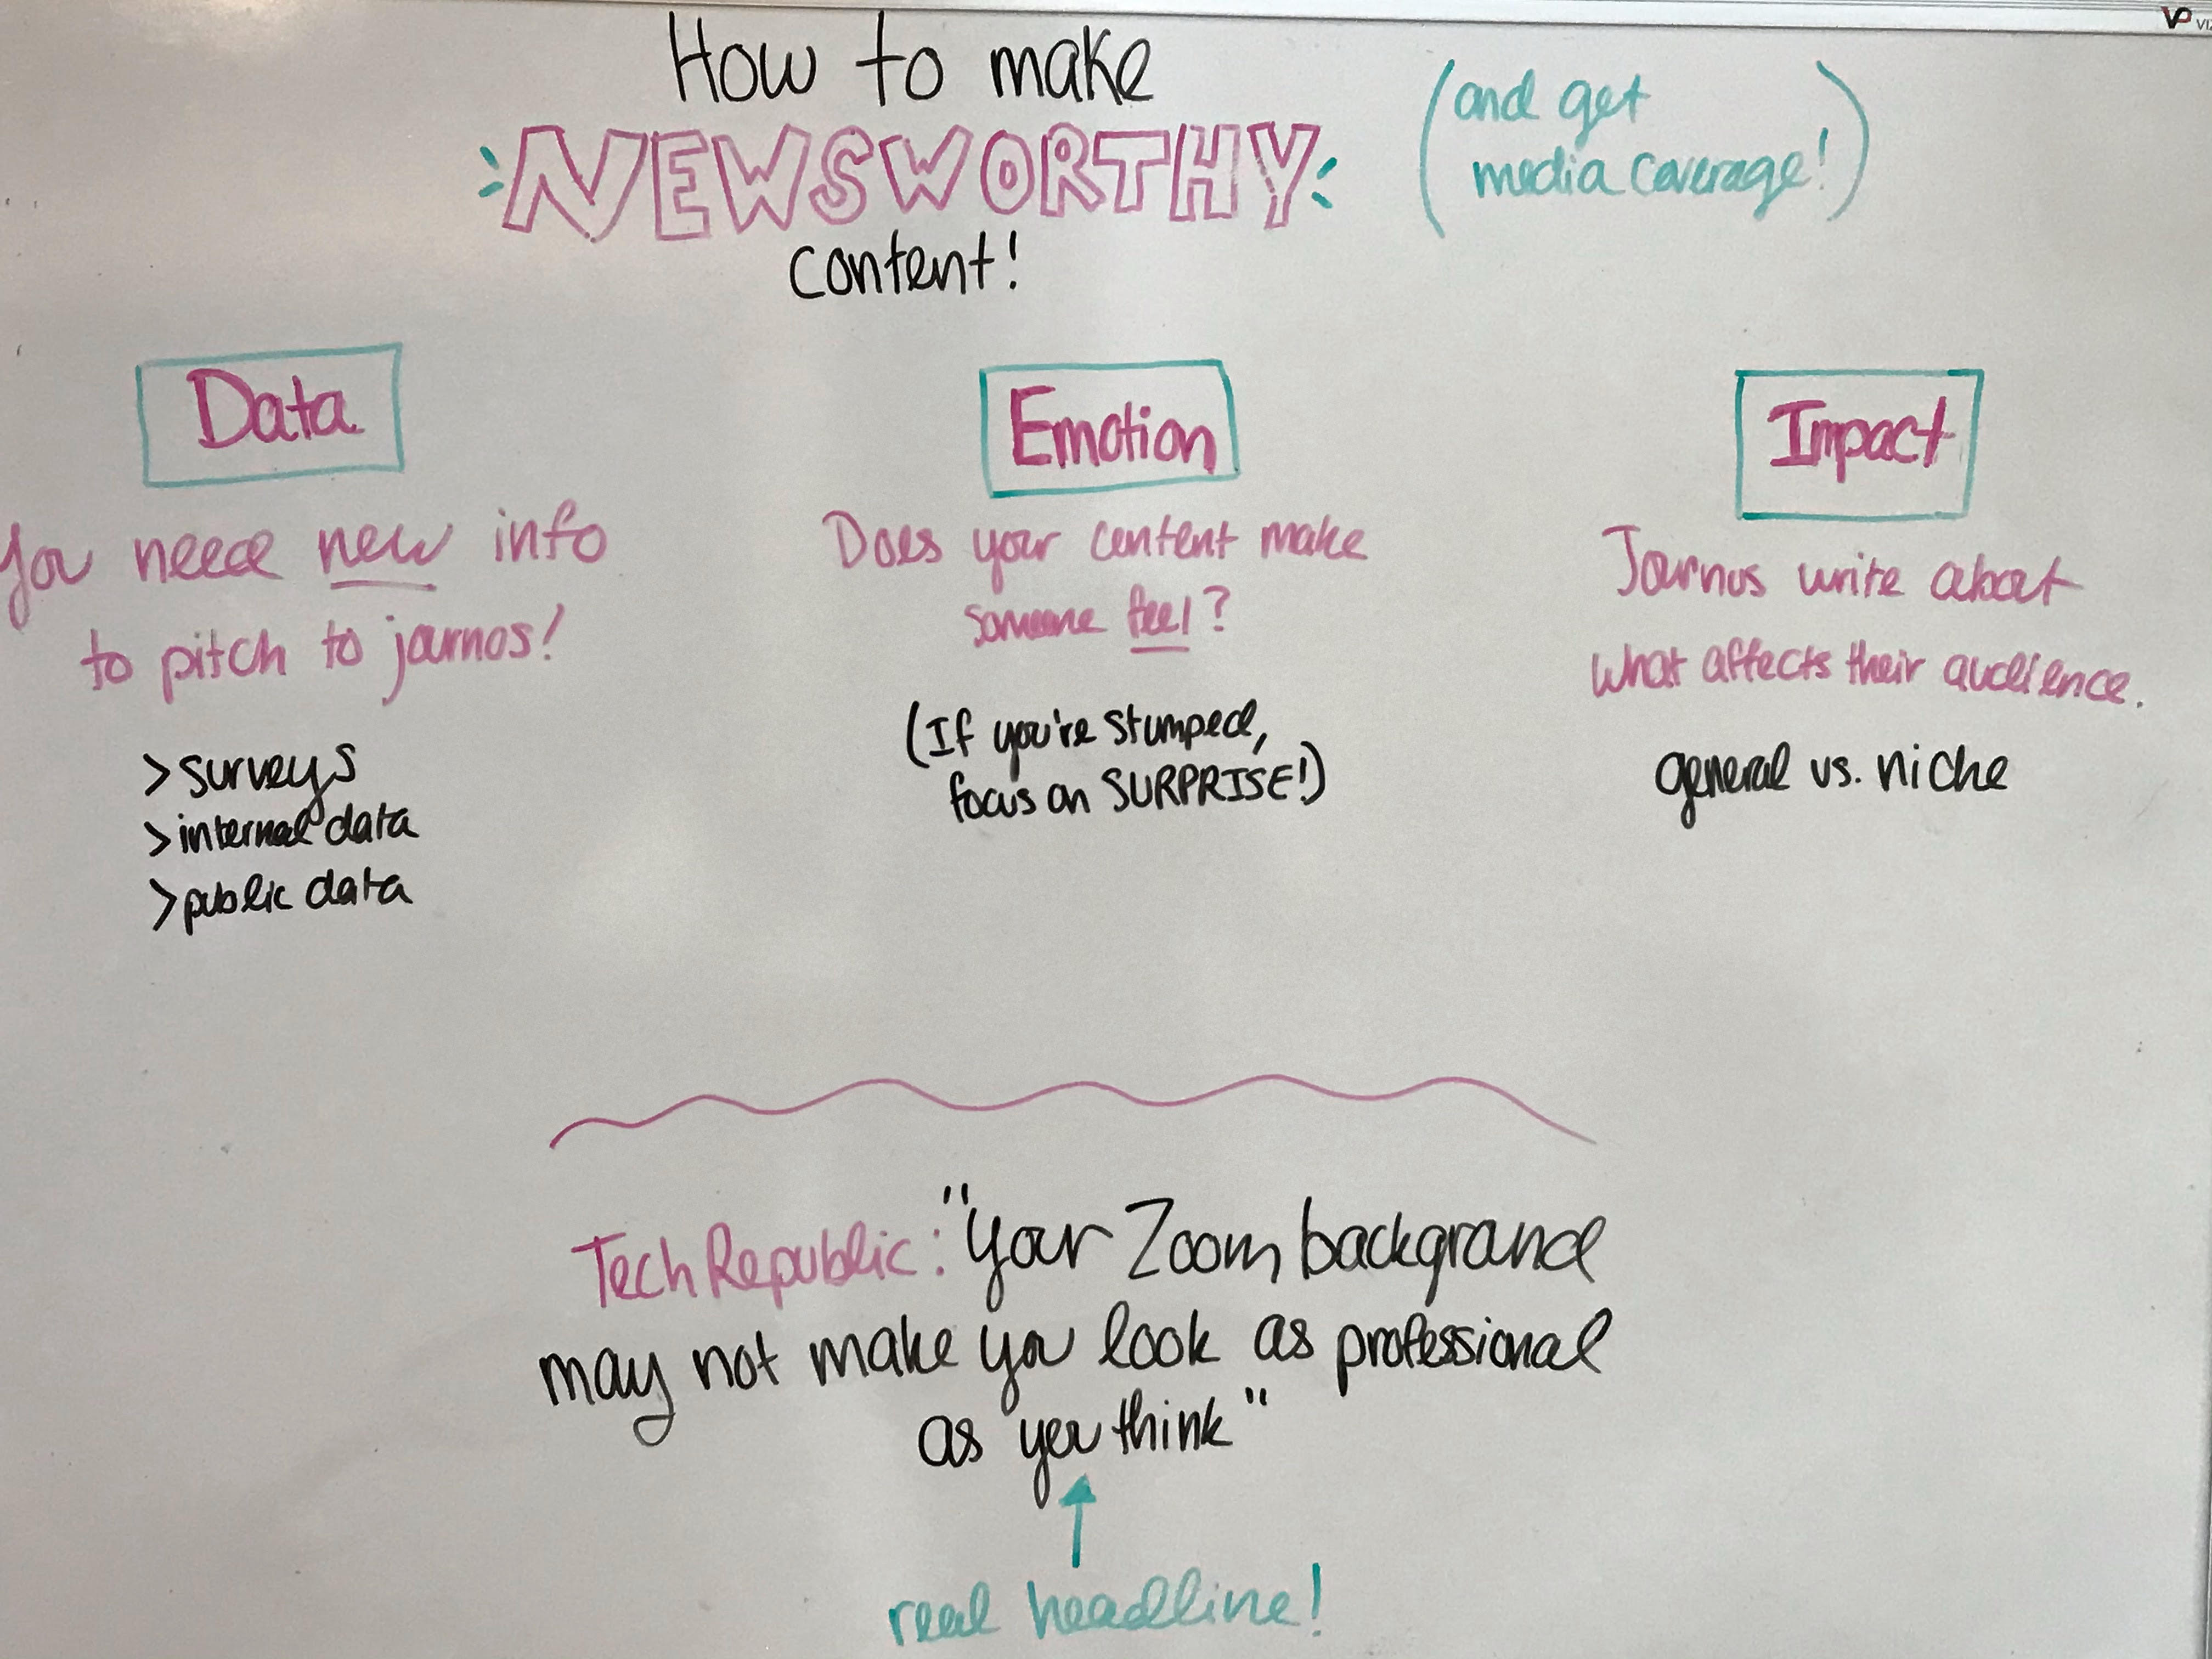 How to make
NEWSWORTHY
content!
(and get
media coverage!)
Data
You need new info
to pitch to journos!
> surveys
> internal data
> public data
Emotion
Does your content make
someone feel?
(If you're stumped,
focus on SURPRISE!)
Impact
Journos write about
what affects their audience.
general vs. niche
TechRepublic: "Your Zoom background
may not make you look as professional
as you think"
real headline!